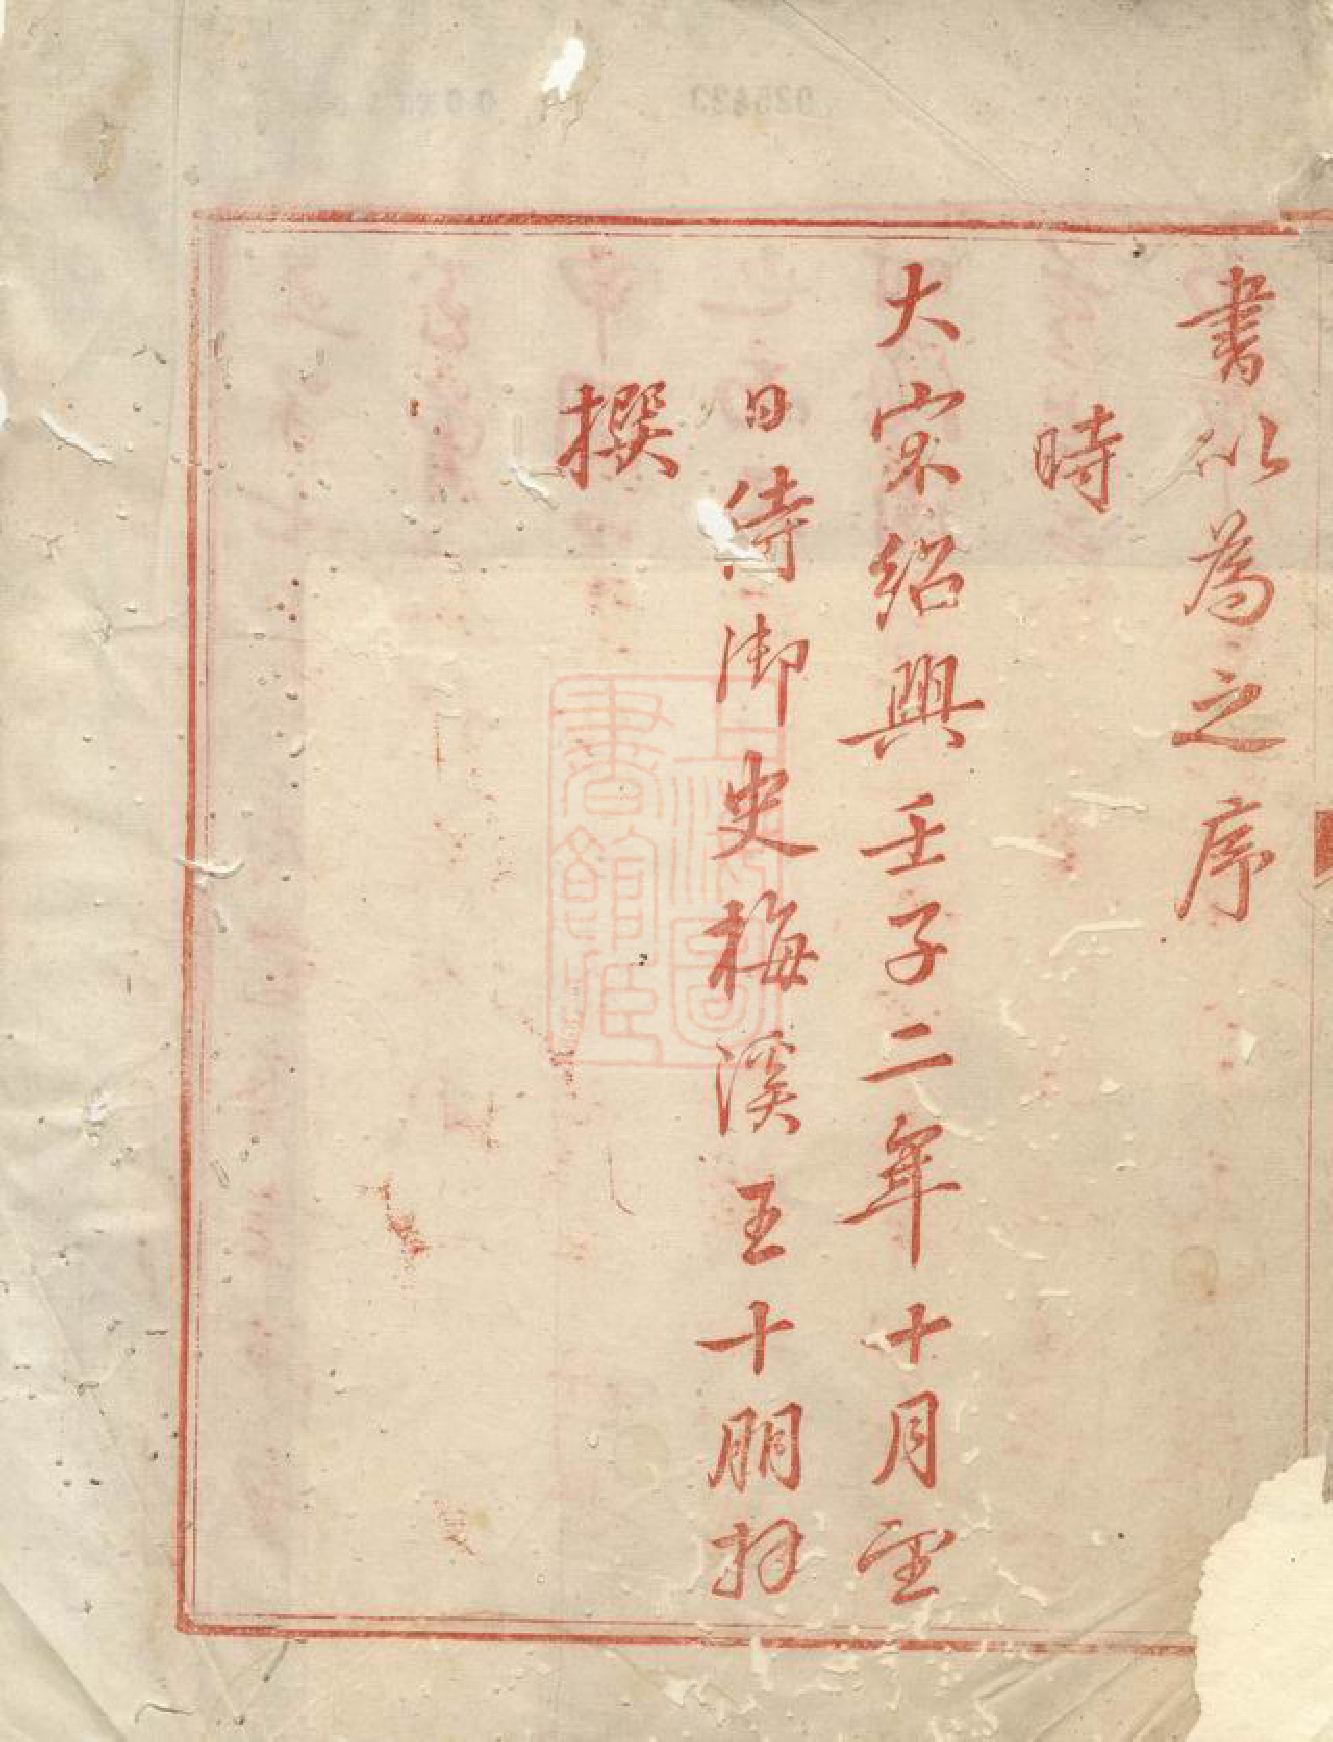 書以為之序
時
大宋紹興壬子二年十月望
日侍御史梅溪王十朋拜
撰
上海圖
書館藏